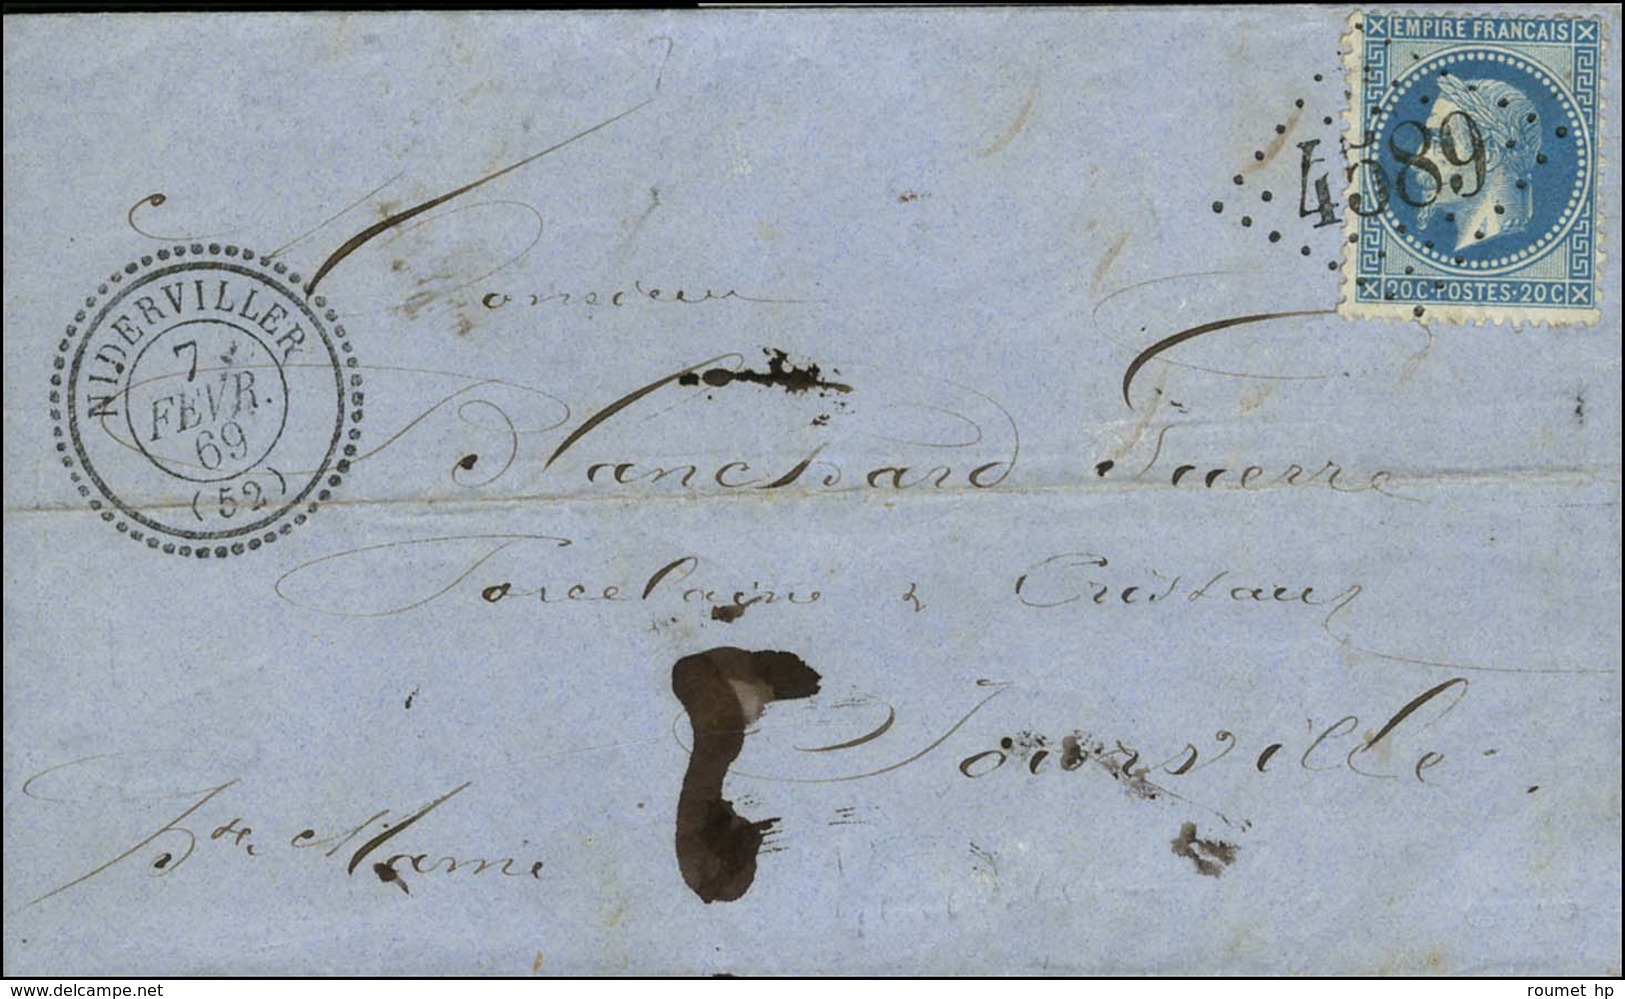 EMPIRE FRANCAIS
4589
20 C·POSTES·20 C
NIDERVILLER
7
FEVR.
69
(52)
Monsieur
Blanchard Guerre
Porcelaine & Cristaux
Joinville
Hte Marne
delcampe.net
roumet hp